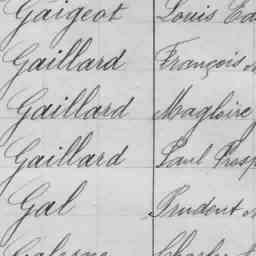 Gaigeot Louis
Gaillard François
Gaillard Magloire
Gaillard Paul
Gal Prudent